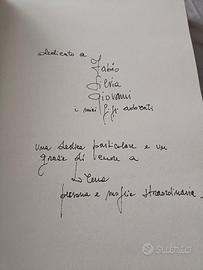 dedicato a
Fabio
Silvia
Giovanni
i miei figli adorati
una dedica particolare e un
grazie di cuore a
Elena
persona e moglie straordinaria.
subito